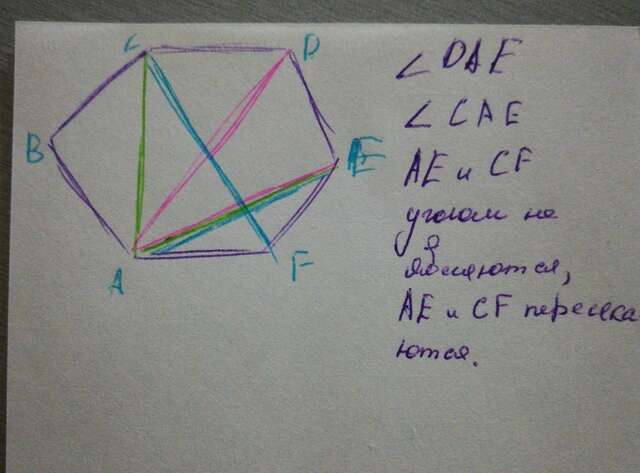 C
D
B
E
A
F
∠ DAE
∠ CAE
AE и CF
углом не
являются,
AE и CF пересека
ются.